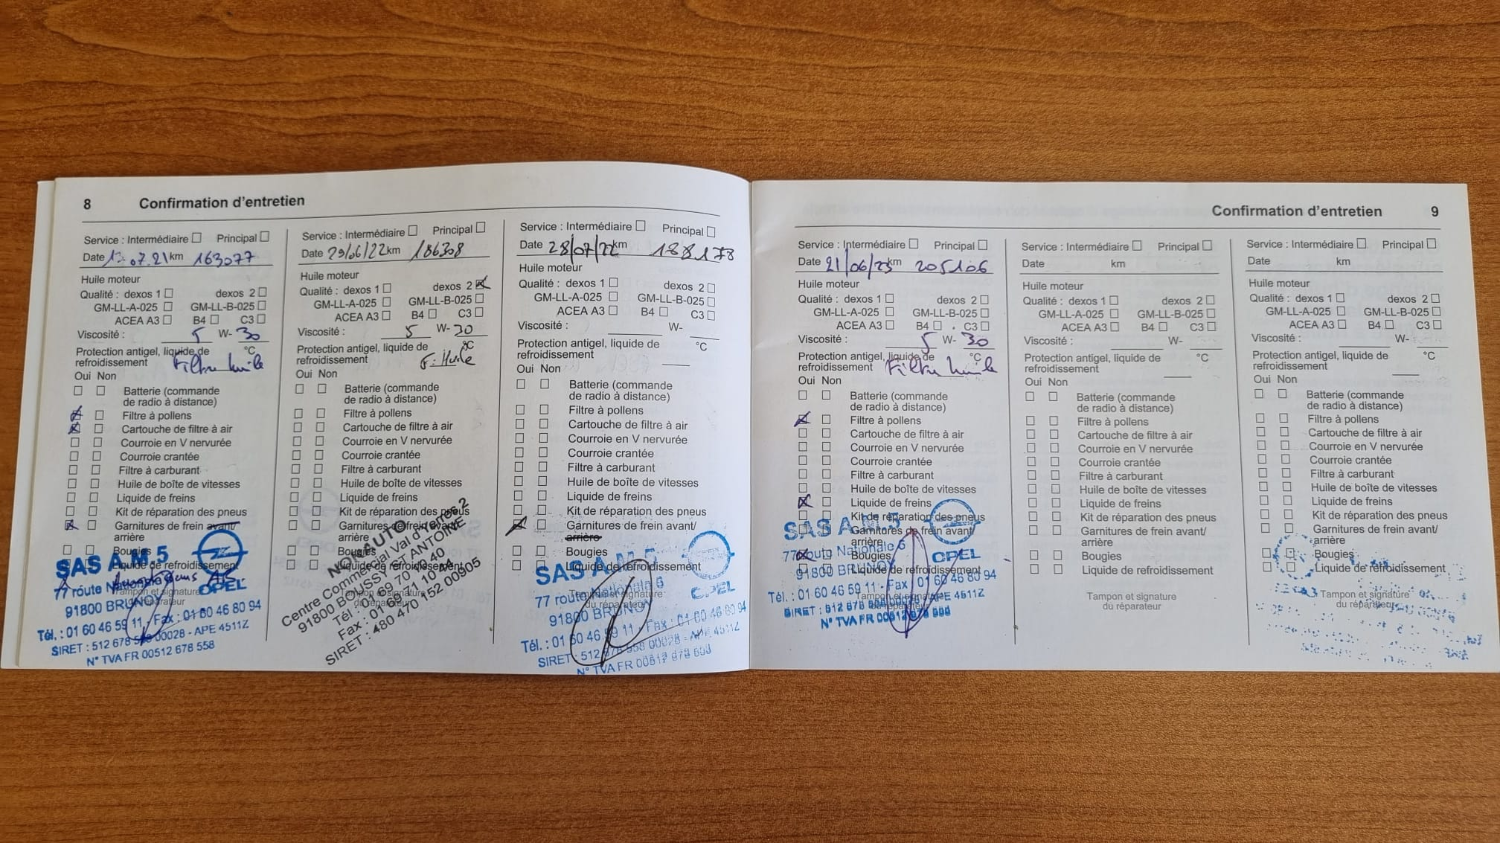 8 Confirmation d'entretien
Service : Intermédiaire Principal
Date 07.21 km 163077
Huile moteur
Qualité : dexos 1 dexos 2
GM-LL-A-025 GM-LL-B-025
ACEA A3 B4 C3
Viscosité : 5 W- 30
Protection antigel, liquide de
refroidissement Filtre huile
Oui Non
Batterie (commande
de radio à distance)
Filtre à pollens
Cartouche de filtre à air
Courroie en V nervurée
Courroie crantée
Filtre à carburant
Huile de boîte de vitesses
Liquide de freins
Kit de réparation des pneus
Garnitures de frein avant/
arrière
Bougies
Liquide de refroidissement
SAS A.M.5
77 route Nationale 6
91800 BRUNOY
OPEL
Tél. : 01 60 46 59 11 - Fax : 01 60 46 80 94
SIRET : 512 678 558 00028 - APE 4511Z
N° TVA FR 00512 678 558
Service : Intermédiaire Principal
Date 29/06/22 km 186308
Huile moteur
Qualité : dexos 1 dexos 2
GM-LL-A-025 GM-LL-B-025
ACEA A3 B4 C3
Viscosité : 5 W- 30
Protection antigel, liquide de °C
refroidissement F. Huile
Oui Non
Batterie (commande
de radio à distance)
Filtre à pollens
Cartouche de filtre à air
Courroie en V nervurée
Courroie crantée
Filtre à carburant
Huile de boîte de vitesses
Liquide de freins
Kit de réparation des pneus
Garnitures de frein avant/
arrière
Bougies
Liquide de refroidissement
NORAUTO
Centre Commercial Val d'Yerres 2
91800 BOUSSY ST ANTOINE
Tél :
Fax :
SIRET : 480 470 152 00905
Service : Intermédiaire Principal
Date 28/07/22 km 188178
Huile moteur
Qualité : dexos 1 dexos 2
GM-LL-A-025 GM-LL-B-025
ACEA A3 B4 C3
Viscosité : W-
Protection antigel, liquide de °C
refroidissement
Oui Non
Batterie (commande
de radio à distance)
Filtre à pollens
Cartouche de filtre à air
Courroie en V nervurée
Courroie crantée
Filtre à carburant
Huile de boîte de vitesses
Liquide de freins
Kit de réparation des pneus
Garnitures de frein avant/
arrière
Bougies
Liquide de refroidissement
SAS A.M.5
77 route Nationale 6
91800 BRUNOY
OPEL
Tél. : 01 60 46 59 11 - Fax : 01 60 46 80 94
SIRET : 512 678 558 00028 - APE 4511Z
N° TVA FR 00512 678 558
Confirmation d'entretien 9
Service : Intermédiaire Principal
Date 21/06/23 km 205106
Huile moteur
Qualité : dexos 1 dexos 2
GM-LL-A-025 GM-LL-B-025
ACEA A3 B4 C3
Viscosité : 5 W- 30
Protection antigel, liquide de °C
refroidissement Filtre huile
Oui Non
Batterie (commande
de radio à distance)
Filtre à pollens
Cartouche de filtre à air
Courroie en V nervurée
Courroie crantée
Filtre à carburant
Huile de boîte de vitesses
Liquide de freins
Kit de réparation des pneus
Garnitures de frein avant/
arrière
Bougies
Liquide de refroidissement
SAS A.M.5
77 route Nationale 6
91800 BRUNOY
OPEL
Tél. : 01 60 46 59 11 - Fax : 01 60 46 80 94
SIRET : 512 678 558 00028 - APE 4511Z
N° TVA FR 00512 678 558
Service : Intermédiaire Principal
Date km
Huile moteur
Qualité : dexos 1 dexos 2
GM-LL-A-025 GM-LL-B-025
ACEA A3 B4 C3
Viscosité : W-
Protection antigel, liquide de °C
refroidissement
Oui Non
Batterie (commande
de radio à distance)
Filtre à pollens
Cartouche de filtre à air
Courroie en V nervurée
Courroie crantée
Filtre à carburant
Huile de boîte de vitesses
Liquide de freins
Kit de réparation des pneus
Garnitures de frein avant/
arrière
Bougies
Liquide de refroidissement
Tampon et signature
du réparateur
Service : Intermédiaire Principal
Date km
Huile moteur
Qualité : dexos 1 dexos 2
GM-LL-A-025 GM-LL-B-025
ACEA A3 B4 C3
Viscosité : W-
Protection antigel, liquide de °C
refroidissement
Oui Non
Batterie (commande
de radio à distance)
Filtre à pollens
Cartouche de filtre à air
Courroie en V nervurée
Courroie crantée
Filtre à carburant
Huile de boîte de vitesses
Liquide de freins
Kit de réparation des pneus
Garnitures de frein avant/
arrière
Bougies
Liquide de refroidissement
Tampon et signature
du réparateur